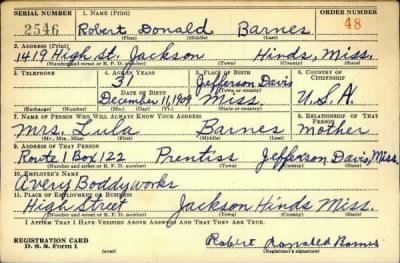 SERIAL NUMBER 1. NAME (Print) ORDER NUMBER
2546 Robert Donald Barnes 48
(First) (Middle) (Last)
2. ADDRESS (Print)
1419 High St. Jackson Hinds, Miss.
(Number and street or R. F. D. number) (Town) (County) (State)
3. TELEPHONE 4. AGE IN YEARS 5. PLACE OF BIRTH 6. COUNTRY OF CITIZENSHIP
31 Jefferson Davis
DATE OF BIRTH (Town or county)
December 11, 1909 Miss. U.S.A.
(Exchange) (Number) (Mo.) (Day) (Yr.) (State or country)
7. NAME OF PERSON WHO WILL ALWAYS KNOW YOUR ADDRESS 8. RELATIONSHIP OF THAT PERSON
Mrs. Lula Barnes Mother
(Mr., Mrs., Miss) (First) (Middle) (Last)
9. ADDRESS OF THAT PERSON
Route 1 Box 122 Prentiss Jefferson Davis, Miss.
(Number and street or R. F. D. number) (Town) (County) (State)
10. EMPLOYER'S NAME
Avery Body works
11. PLACE OF EMPLOYMENT OR BUSINESS
High Street Jackson Hinds Miss.
(Number and street or R. F. D. number) (Town) (County) (State)
I AFFIRM THAT I HAVE VERIFIED ABOVE ANSWERS AND THAT THEY ARE TRUE.
REGISTRATION CARD Robert Donald Barnes
D. S. S. Form 1 (over) (Registrant's signature)